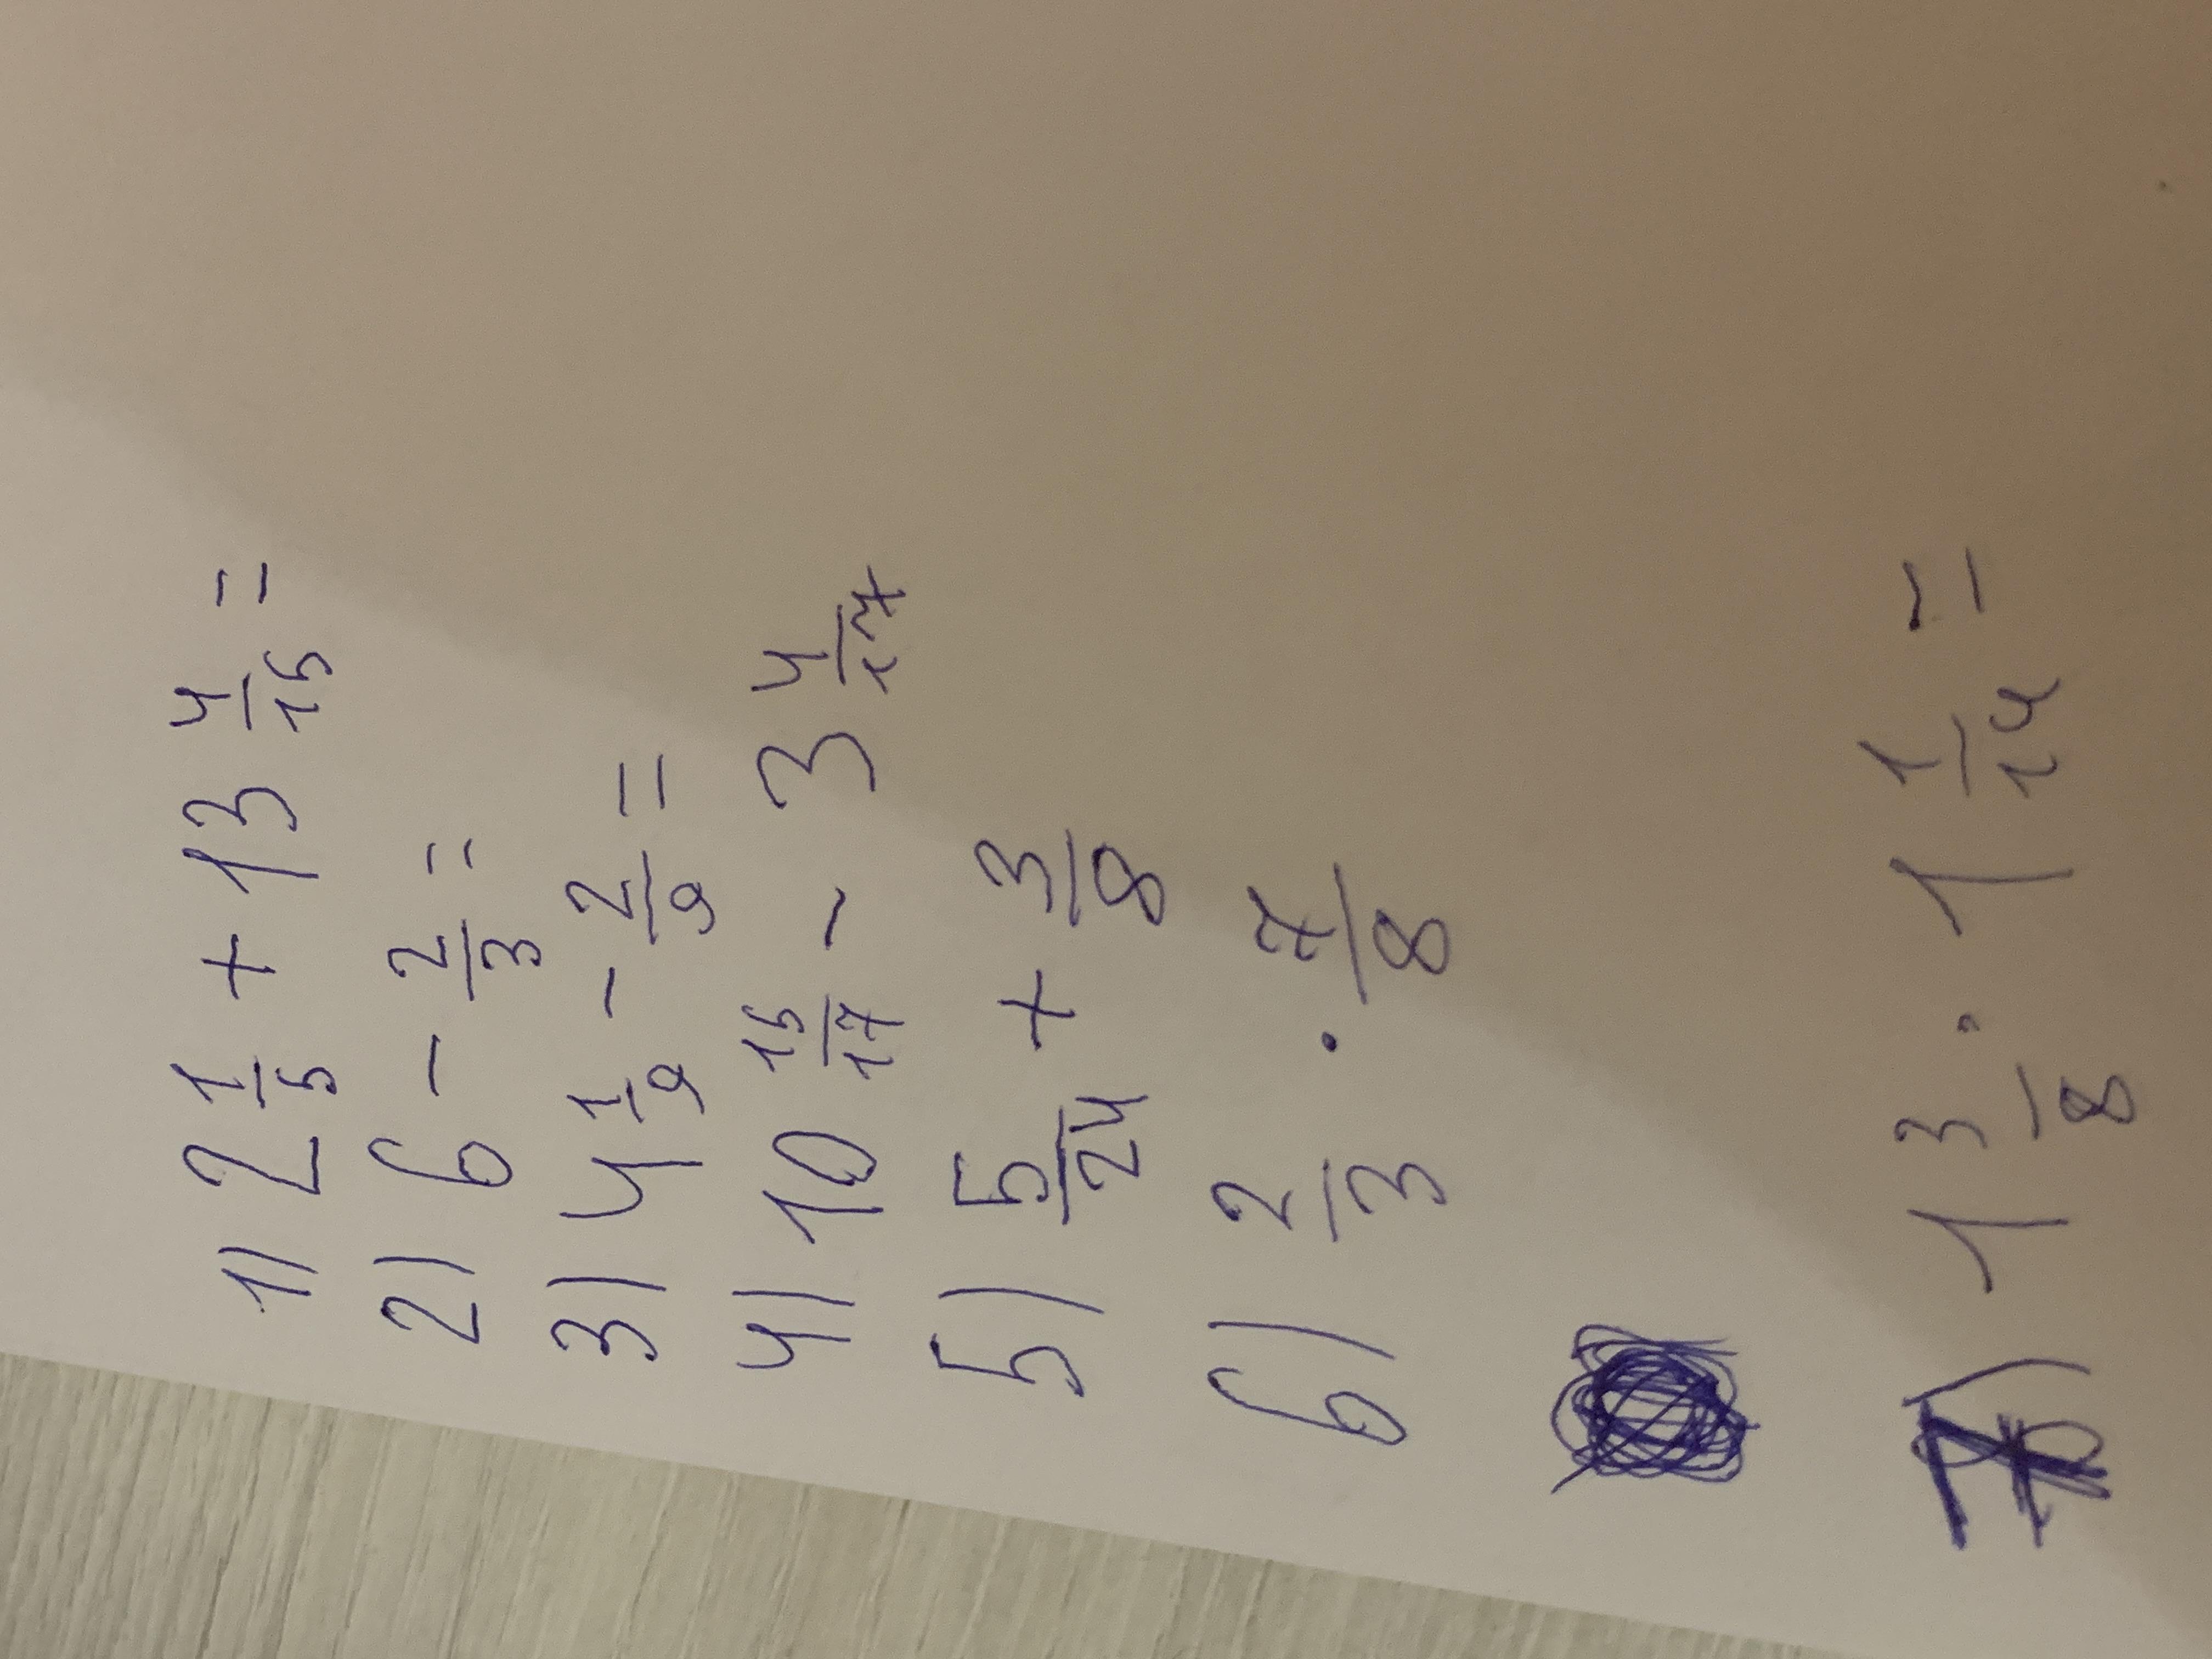 1) 2 1/5 + 13 4/15 =
2) 6 - 2/3 =
3) 4 1/9 - 2/9 =
4) 10 15/17 - 3 4/17
5) 5/24 + 3/8
6) 2/3 · 7/8
7) 1 3/8 · 1 1/14 =